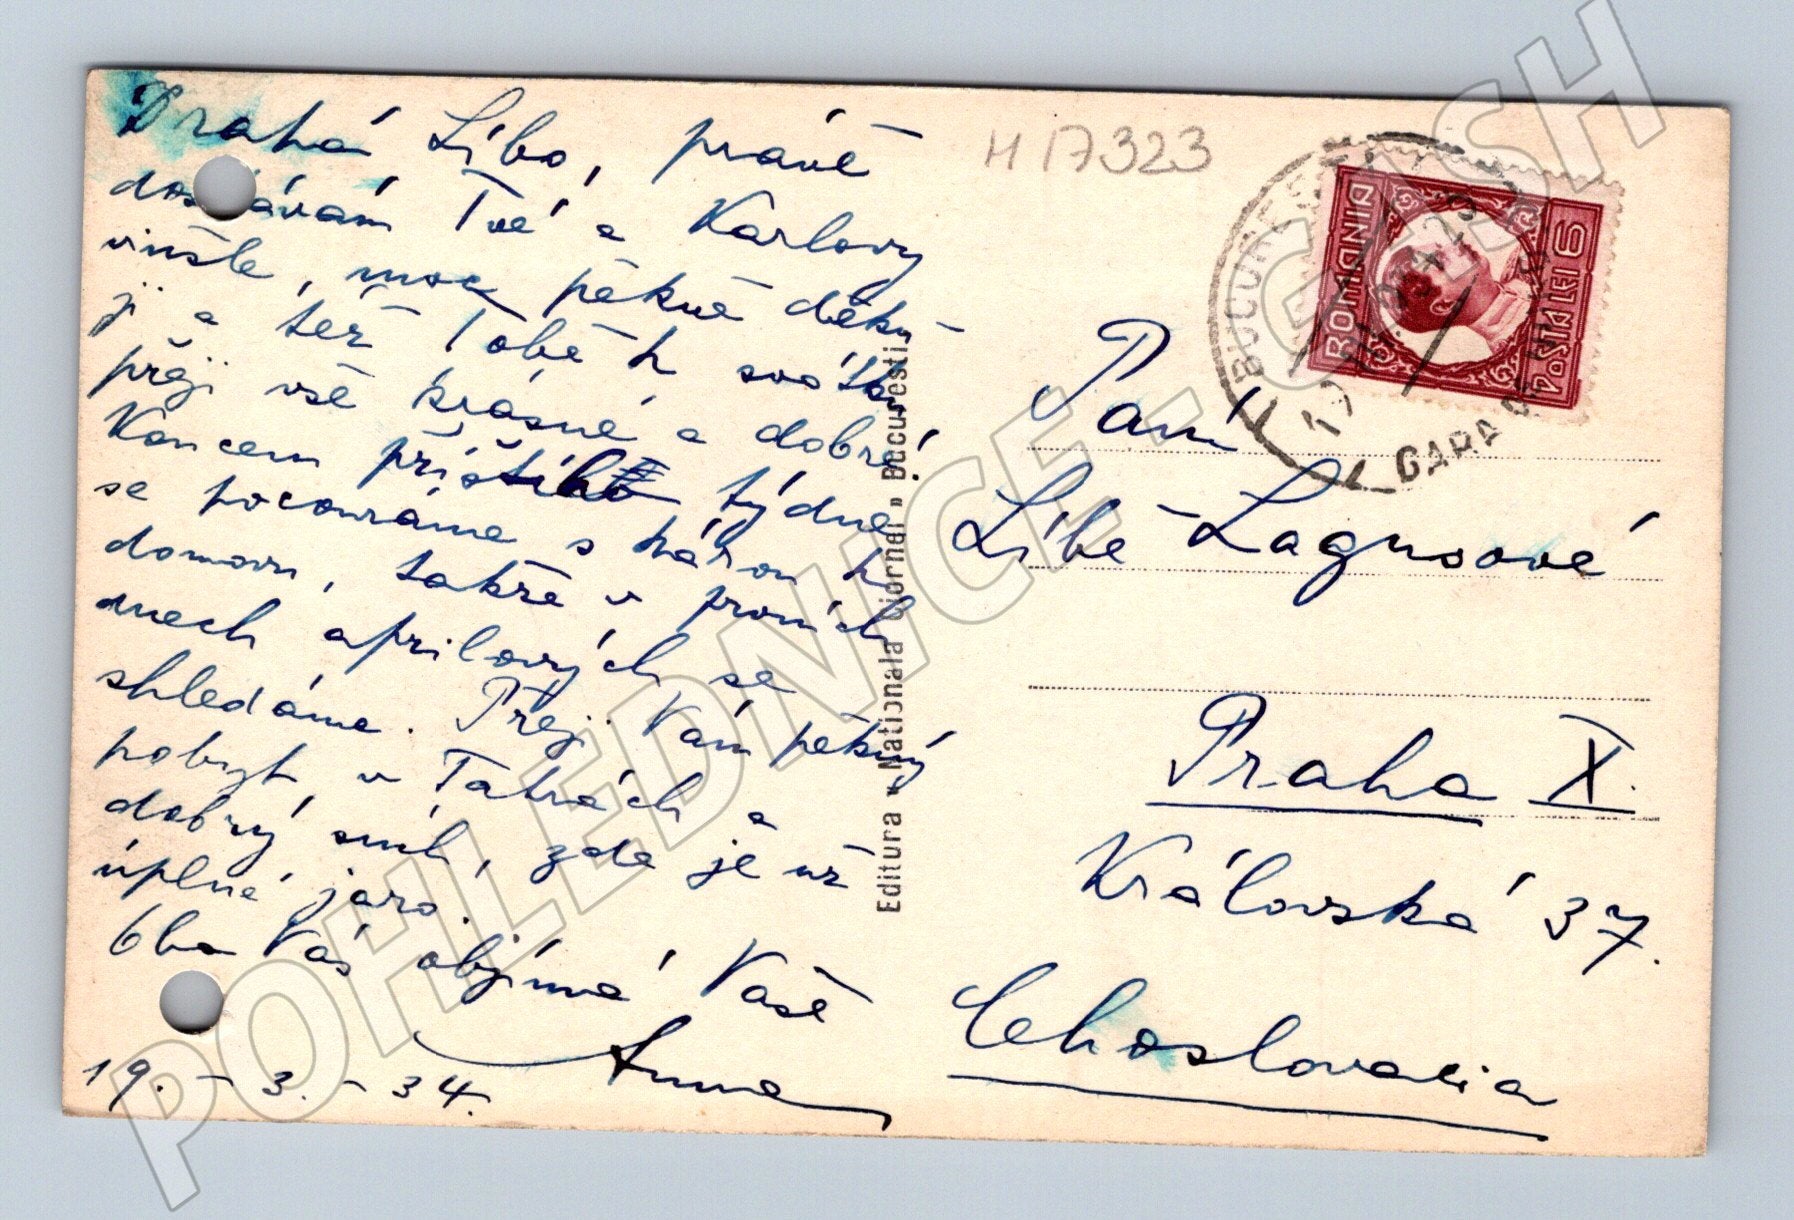 Drahá Líbo, právě
dostávám Tvé a Karlovy
vinšte, moc pěkně děku-
ji a též Tobě k svátku
přeji vše krásné a dobré!
Koncem příštího týdne
se pocouráme s károu k
domovu, takže v prvních
dnech aprilových se
shledáme. Přeji Vám pěkný
pobyt v Tatrách a
dobrý sníh, zde je už
úplné jaro.
Oba Vás objímá Vaše
Anna
19. - 3. - 34.
H 17323
Editura « Nationala Ciornei » Bucuresti
ROMANIA
POSTA LEI 6
BUCUREST
GARA
Paní
Líbě Lagusové
Praha X.
Královská 37.
Cehoslovacia
POHLEDNICE - CASH